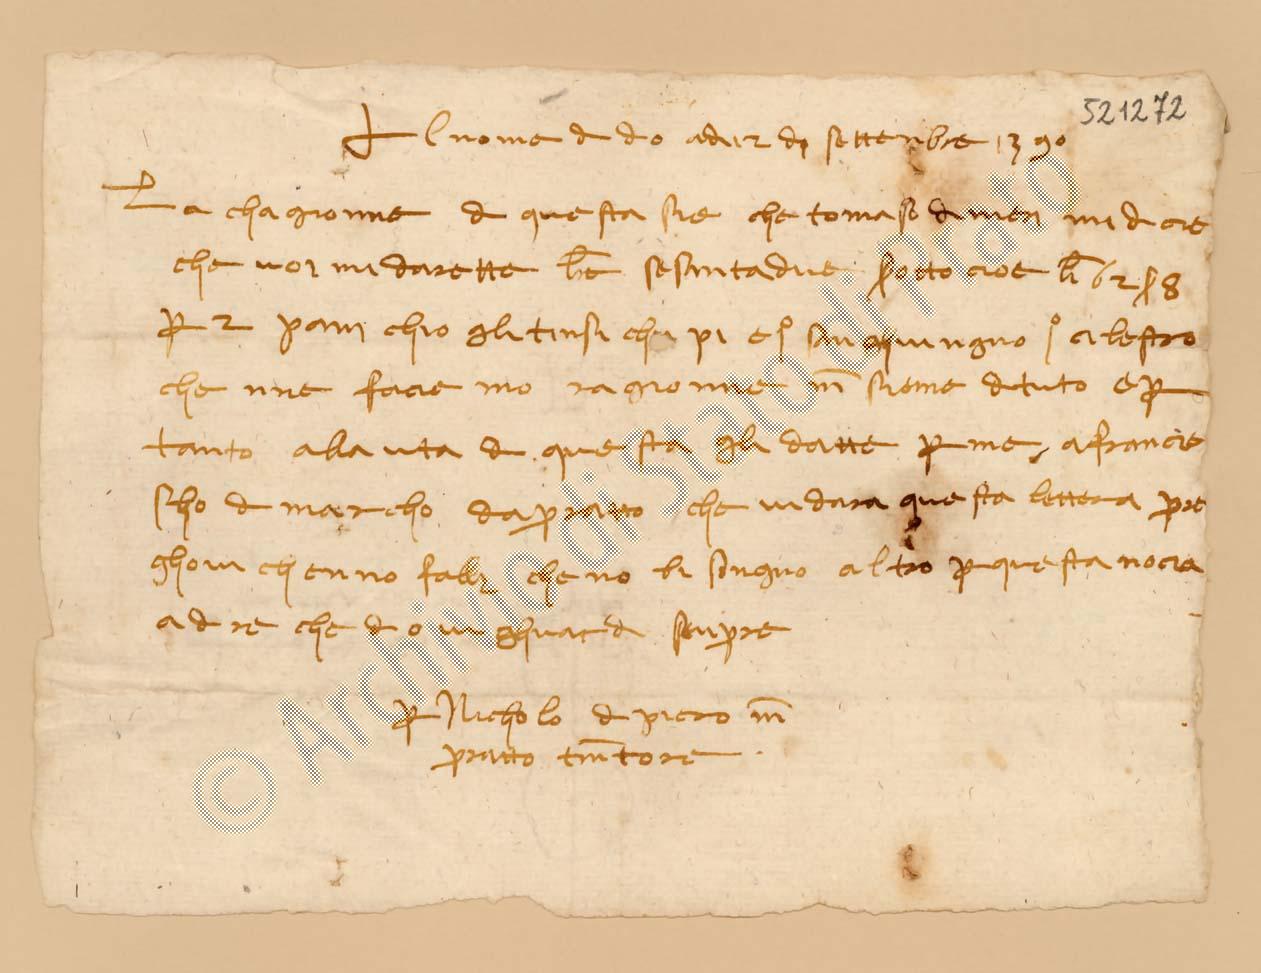 521272
† Al nome di dio a dì 12 di settenbre 1390
La chagionne di questa sie che tomaso di meri mi dicie
che voi mi darette lbe sesantadue s otto cioe lb 62 s 8
per 2 pani chio gli tinsi e sanguingno cilestro
che nne facie mo ragionne in sieme di tuto e per
tanto alla uta di questa gli datte per me a francie
scho di marcho da pratto che vi dara questa lettera pre
ghovi che nno falli che no bisongno altro per questa nocia
a dire che dio vi ghuardi senpre
per Nicholo di piero in
pratto tintore
© Archivio di Stato di Prato